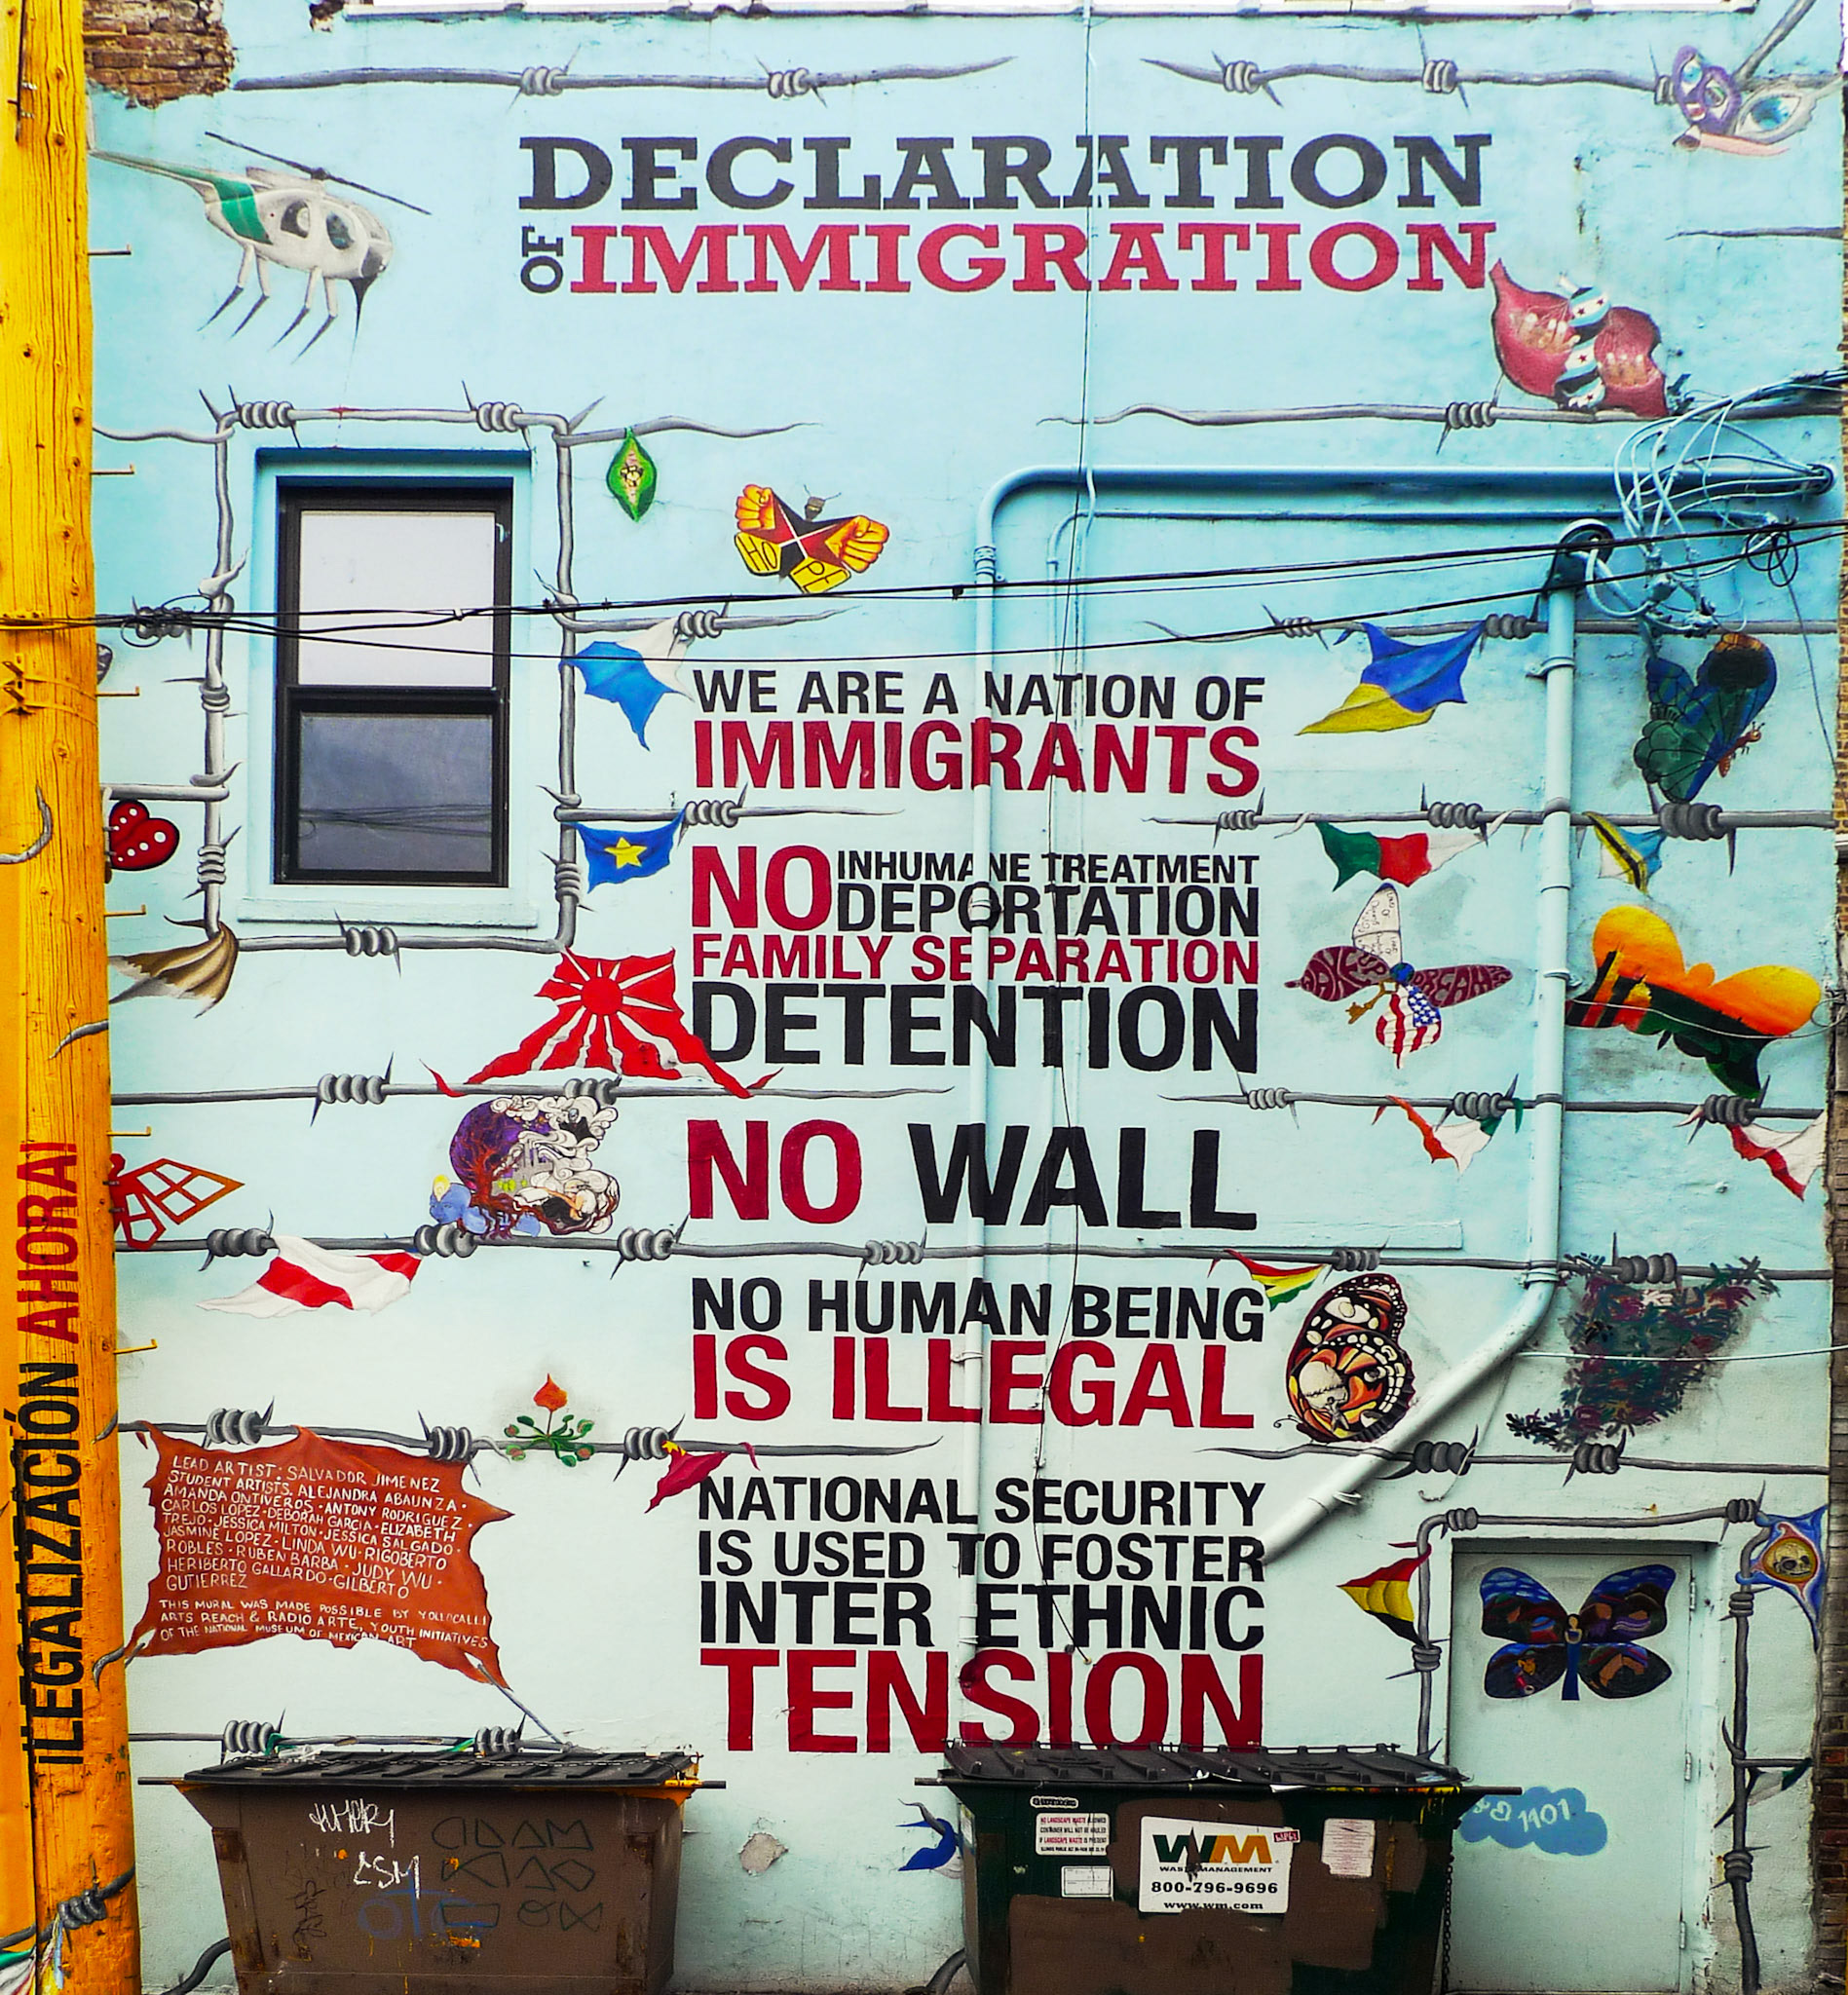 DECLARATION
OF IMMIGRATION
HOPE
WE ARE A NATION OF
IMMIGRANTS
NO INHUMANE TREATMENT
DEPORTATION
FAMILY SEPARATION
DETENTION
WAKE UP DREAMERS
NO WALL
NO HUMAN BEING
IS ILLEGAL
NATIONAL SECURITY
IS USED TO FOSTER
INTER ETHNIC
TENSION
¡LEGALIZACIÓN AHORA!
LEAD ARTIST: SALVADOR JIMENEZ
STUDENT ARTISTS: ALEJANDRA ABAUNZA ·
AMANDA ONTIVEROS · ANTONY RODRIGUEZ ·
CARLOS LOPEZ · DEBORAH GARCIA · ELIZABETH
TREJO · JESSICA MILTON · JESSICA SALGADO ·
JASMINE LOPEZ · LINDA WU · RIGOBERTO
ROBLES · RUBEN BARBA · JUDY WU ·
HERIBERTO GALLARDO · GILBERTO
GUTIERREZ
THIS MURAL WAS MADE POSSIBLE BY YOLLOCALLI
ARTS REACH & RADIO ARTE, YOUTH INITIATIVES
OF THE NATIONAL MUSEUM OF MEXICAN ART
1401
WM
WASTE MANAGEMENT
800-796-9696
www.wm.com